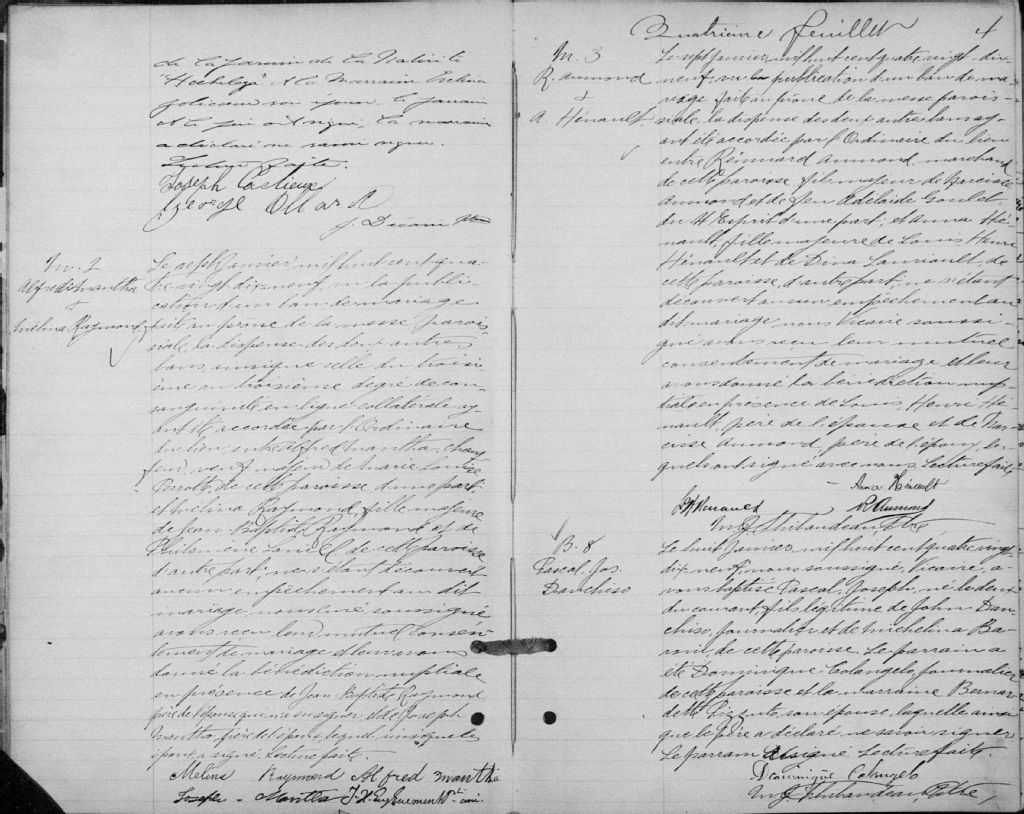 de la paroisse de la Nativité
"Hochelaga" et la marraine
son épouse. le parrain
et le père ont signé. La marraine
a déclaré ne savoir signer.
Joseph
George Allard
M. 2
Alfred Mantha
+
Mélina Raymond
Le sept Janvier, mil huit cent qua-
tre vingt dix neuf vu la publi-
cation d'un ban de mariage
fait au prône de la messe parois-
siale, la dispense des deux autres
bans, ainsi que celle du troisi-
ème au troisième degré de con-
sanguinité en ligne collatérale ay-
ant été accordée par l'Ordinaire
du lieu, entre Alfred Mantha, chauf-
feur, veuf majeur de Marie Louise
de cette paroisse d'une part,
et Mélina Raymond, fille majeure
de Jean Baptiste Raymond et de
Philomène de cette paroisse
d'autre part; ne s'étant découvert
aucun empêchement au dit
mariage, nous curé soussigné
avons reçu leur mutuel consen-
tement de mariage et leur avons
donné la bénédiction nuptiale
en présence de Jean Baptiste Raymond
père de l'épouse qui n'a su signer, et de Joseph
Mantha, frère de l'époux lequel, ainsi que les
époux a signé. Lecture faite.
Melina Raymond Alfred Mantha
Joseph Mantha
Quatrième feuillet 4
M. 3
R. Aumond
+
A. Hénault
Le sept Janvier, mil huit cent quatre vingt dix-
neuf, vu la publication d'un ban de ma-
riage fait au prône de la messe parois-
siale, la dispense des deux autres bans ay-
ant été accordée par l'Ordinaire du lieu
entre Aumond, marchand
de cette paroisse, fils majeur de Narcisse
Aumond et de feu Adelaïde Goulet,
du St Esprit d'une part; et Anna Hé-
nault, fille majeure de Louis, Henri
Hénault et de Dina de
cette paroisse, d'autre part; ne s'étant
découvert aucun empêchement au
dit mariage, nous Vicaire soussi-
gné avons reçu leur mutuel
consentement de mariage et leur
avons donné la bénédiction nup-
tiale en présence de Louis, Henri Hé-
nault, père de l'épouse et de Nar-
cisse Aumond, père de l'époux les-
quels ont signé avec nous. Lecture faite.
Anna Hénault
Henault R Aumond
Thibaudeau, Ptre
B. 8
Pascal, Jos.
Danchiso
Le huit Janvier, mil huit cent quatre vingt
dix neuf, nous soussigné, Vicaire a-
vons baptisé Pascal, Joseph, né le deux
du courant, fils légitime de John Dan-
chiso, journalier et de Michelina Ba-
roni, de cette paroisse. Le parrain a
été Dominique Colangelo, journalier
de cette paroisse et la marraine Bernar-
dette son épouse, laquelle ainsi
que le père a déclaré ne savoir signer
Le parrain a signé. Lecture faite.
Dominique Colangelo
Thibaudeau, Ptre